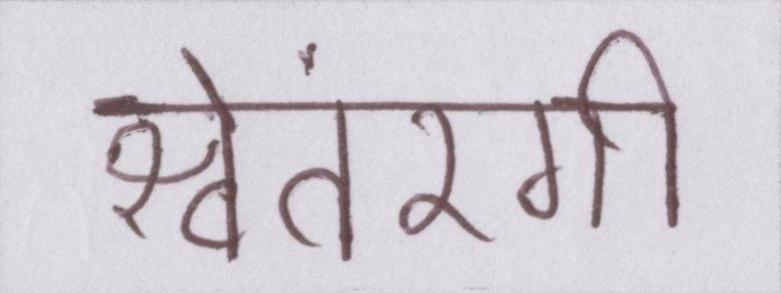 श्वेतंरगी